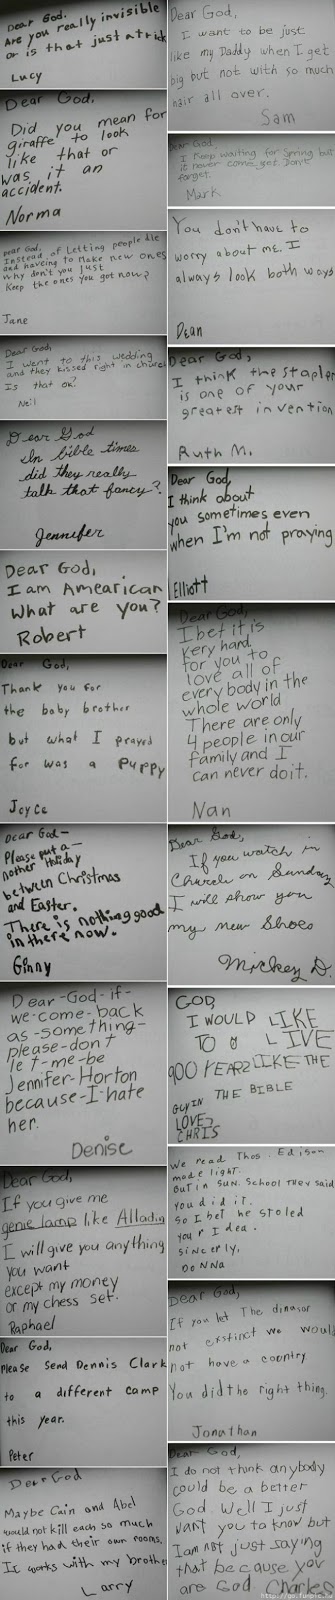 Dear God.
Are you really invisible
or is that just a trick
Lucy
Dear God,
Did you mean for
giraffe to look
like that or
was it an
accident.
Norma
Dear God.
Instead of Letting people die
and haveing to Make new ones
why don't you Just
Keep the ones you got now?
Jane
Dear God,
I went to this wedding
and they kissed right in church
Is that OK?
Neil
Dear God
In bible times
did they really
talk that fancy?
Jennifer
Dear God,
I am Amearican
What are you?
Robert
Dear God,
Thank you for
the baby brother
but what I prayed
for was a puppy
Joyce
Dear God—
Please put a—
nother Holiday
between Christmas
and Easter.
There is nothing good
in there now.
Ginny
Dear-God-if-
we-come-back
as-something-
please-don't
let-me-be
Jennifer-Horton
because-I-hate
her.
Denise
Dear God,
If you give me
genie lamp like Alladin
I will give you anything
you want
except my money
or my chess set.
Raphael
Dear God,
Please Send Dennis Clark
to a different camp
this year.
Peter
Dear God
Maybe Cain and Abel
would not kill each so much
if they had their own rooms.
It works with my brother
Larry
Dear God,
I want to be just
like my Daddy when I get
big but not with so much
hair all over.
Sam
Dear God.
I Keep waiting for Spring but
it never come yet. Don't
forget.
Mark
You don't have to
worry about me. I
always look both ways
Dean
Dear God,
I think the stapler
is one of your
greatest invention
Ruth M.
Dear God,
I think about
you sometimes even
when I'm not praying
Elliott
Dear God,
I bet it is
very hard
for you to
love all of
every body in the
whole world
There are only
4 people in our
family and I
can never do it.
Nan
Dear God,
If you watch in
Church on Sunday
I will show you
my new Shoes
Mickey D.
GOD,
I WOULD LIKE
TO LIVE
900 YEARS LIKE THE
GUY IN THE BIBLE
LOVE,
CHRIS
We read Thos. Edison
made light.
But in Sun. School they said
you did it.
So I bet he stoled
your Idea.
Sincerly,
Donna
Dear God,
If you let The dinasor
not exstinct we would
not have a country
You did the right thing.
Jonathan
Dear God,
I do not think anybody
could be a better
God. Well I just
want you to know but
I am not just saying
that because you
are God. Charles